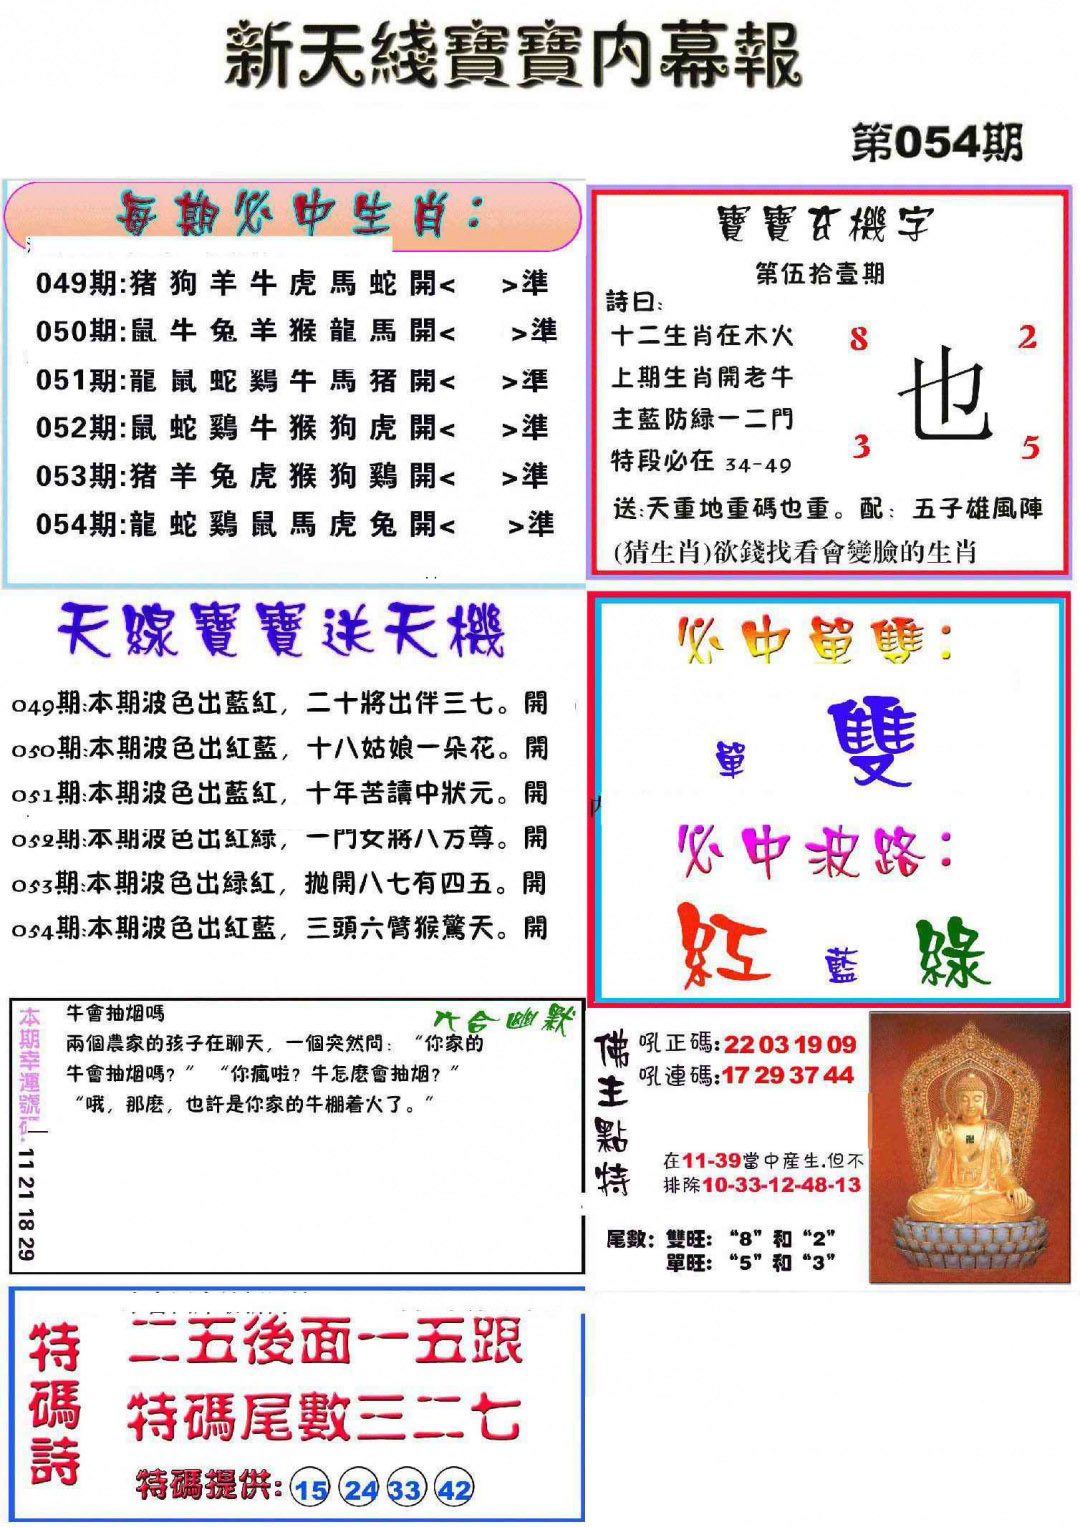 新天綫寶寶内幕報
第054期
每期必中生肖：
049期:猪狗羊牛虎馬蛇開< >準
050期:鼠牛兔羊猴龍馬開< >準
051期:龍鼠蛇鷄牛馬猪開< >準
052期:鼠蛇鷄牛猴狗虎開< >準
053期:猪羊兔虎猴狗鷄開< >準
054期:龍蛇鷄鼠馬虎兔開< >準
寶寶玄機字
第伍拾壹期
詩曰:
十二生肖在木火
上期生肖開老牛
主藍防緑一二門
特段必在 34-49
8
2
也
3
5
送:天重地重碼也重。配：五子雄風陣
(猜生肖)欲錢找看會變臉的生肖
天線寶寶送天機
049期:本期波色出藍紅，二十將出伴三七。開
050期:本期波色出紅藍，十八姑娘一朵花。開
051期:本期波色出藍紅，十年苦讀中狀元。開
052期:本期波色出紅緑，一門女將八万尊。開
053期:本期波色出緑紅，抛開八七有四五。開
054期:本期波色出紅藍，三頭六臂猴驚天。開
必中單雙：
單 雙
必中波路：
紅 藍 綠
本期幸運號碼: 11 21 18 29
六合幽默
牛會抽烟嗎
兩個農家的孩子在聊天，一個突然問：“你家的
牛會抽烟嗎？”“你瘋啦？牛怎麽會抽烟？”
“哦，那麽，也許是你家的牛棚着火了。”
佛主點特
吼正碼:22 03 19 09
吼連碼:17 29 37 44
在11-39當中産生.但不
排除10-33-12-48-13
尾數：雙旺：“8”和“2”
單旺：“5”和“3”
特碼詩
二五後面一五跟
特碼尾數三二七
特碼提供: 15 24 33 42